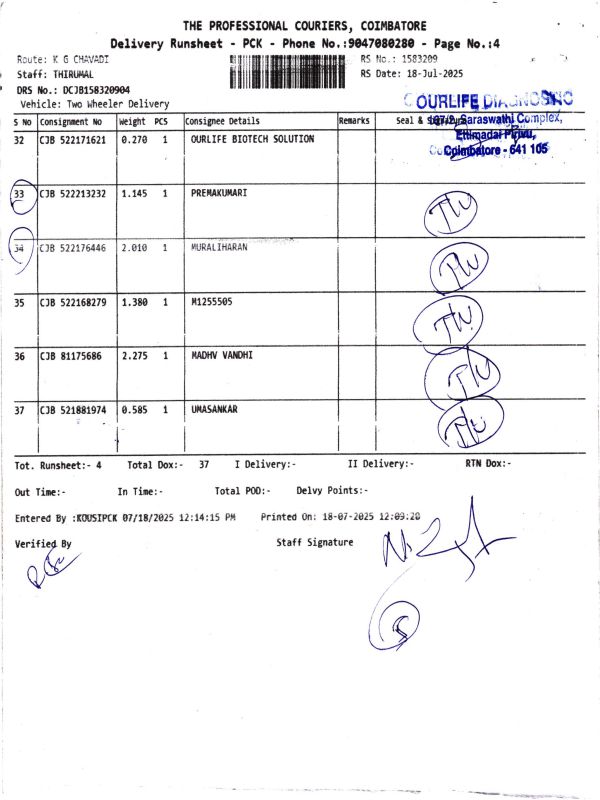 THE PROFESSIONAL COURIERS, COIMBATORE
Delivery Runsheet - PCK - Phone No.:9047080280 - Page No.:4
Route: K G CHAVADI RS No.: 1583209
Staff: THIRUMAL RS Date: 18-Jul-2025
DRS No.: DCJB158320904
Vehicle: Two Wheeler Delivery
OURLIFE DIAGNOSTIC
167/2, Saraswathi Complex,
Ettimadai Pirivu,
Coimbatore - 641 105
S No Consignment No Weight PCS Consignee Details Remarks Seal &
32 CJB 522171621 0.270 1 OURLIFE BIOTECH SOLUTION
33 CJB 522213232 1.145 1 PREMAKUMARI
34 CJB 522176446 2.010 1 MURALIHARAN
35 CJB 522168279 1.380 1 M1255505
36 CJB 81175686 2.275 1 MADHV VANDHI
37 CJB 521881974 0.585 1 UMASANKAR
Tot. Runsheet:- 4 Total Dox:- 37 I Delivery:- II Delivery:- RTN Dox:-
Out Time:- In Time:- Total POD:- Delvy Points:-
Entered By :KOUSIPCK 07/18/2025 12:14:15 PM Printed On: 18-07-2025 12:09:20
Verified By Staff Signature